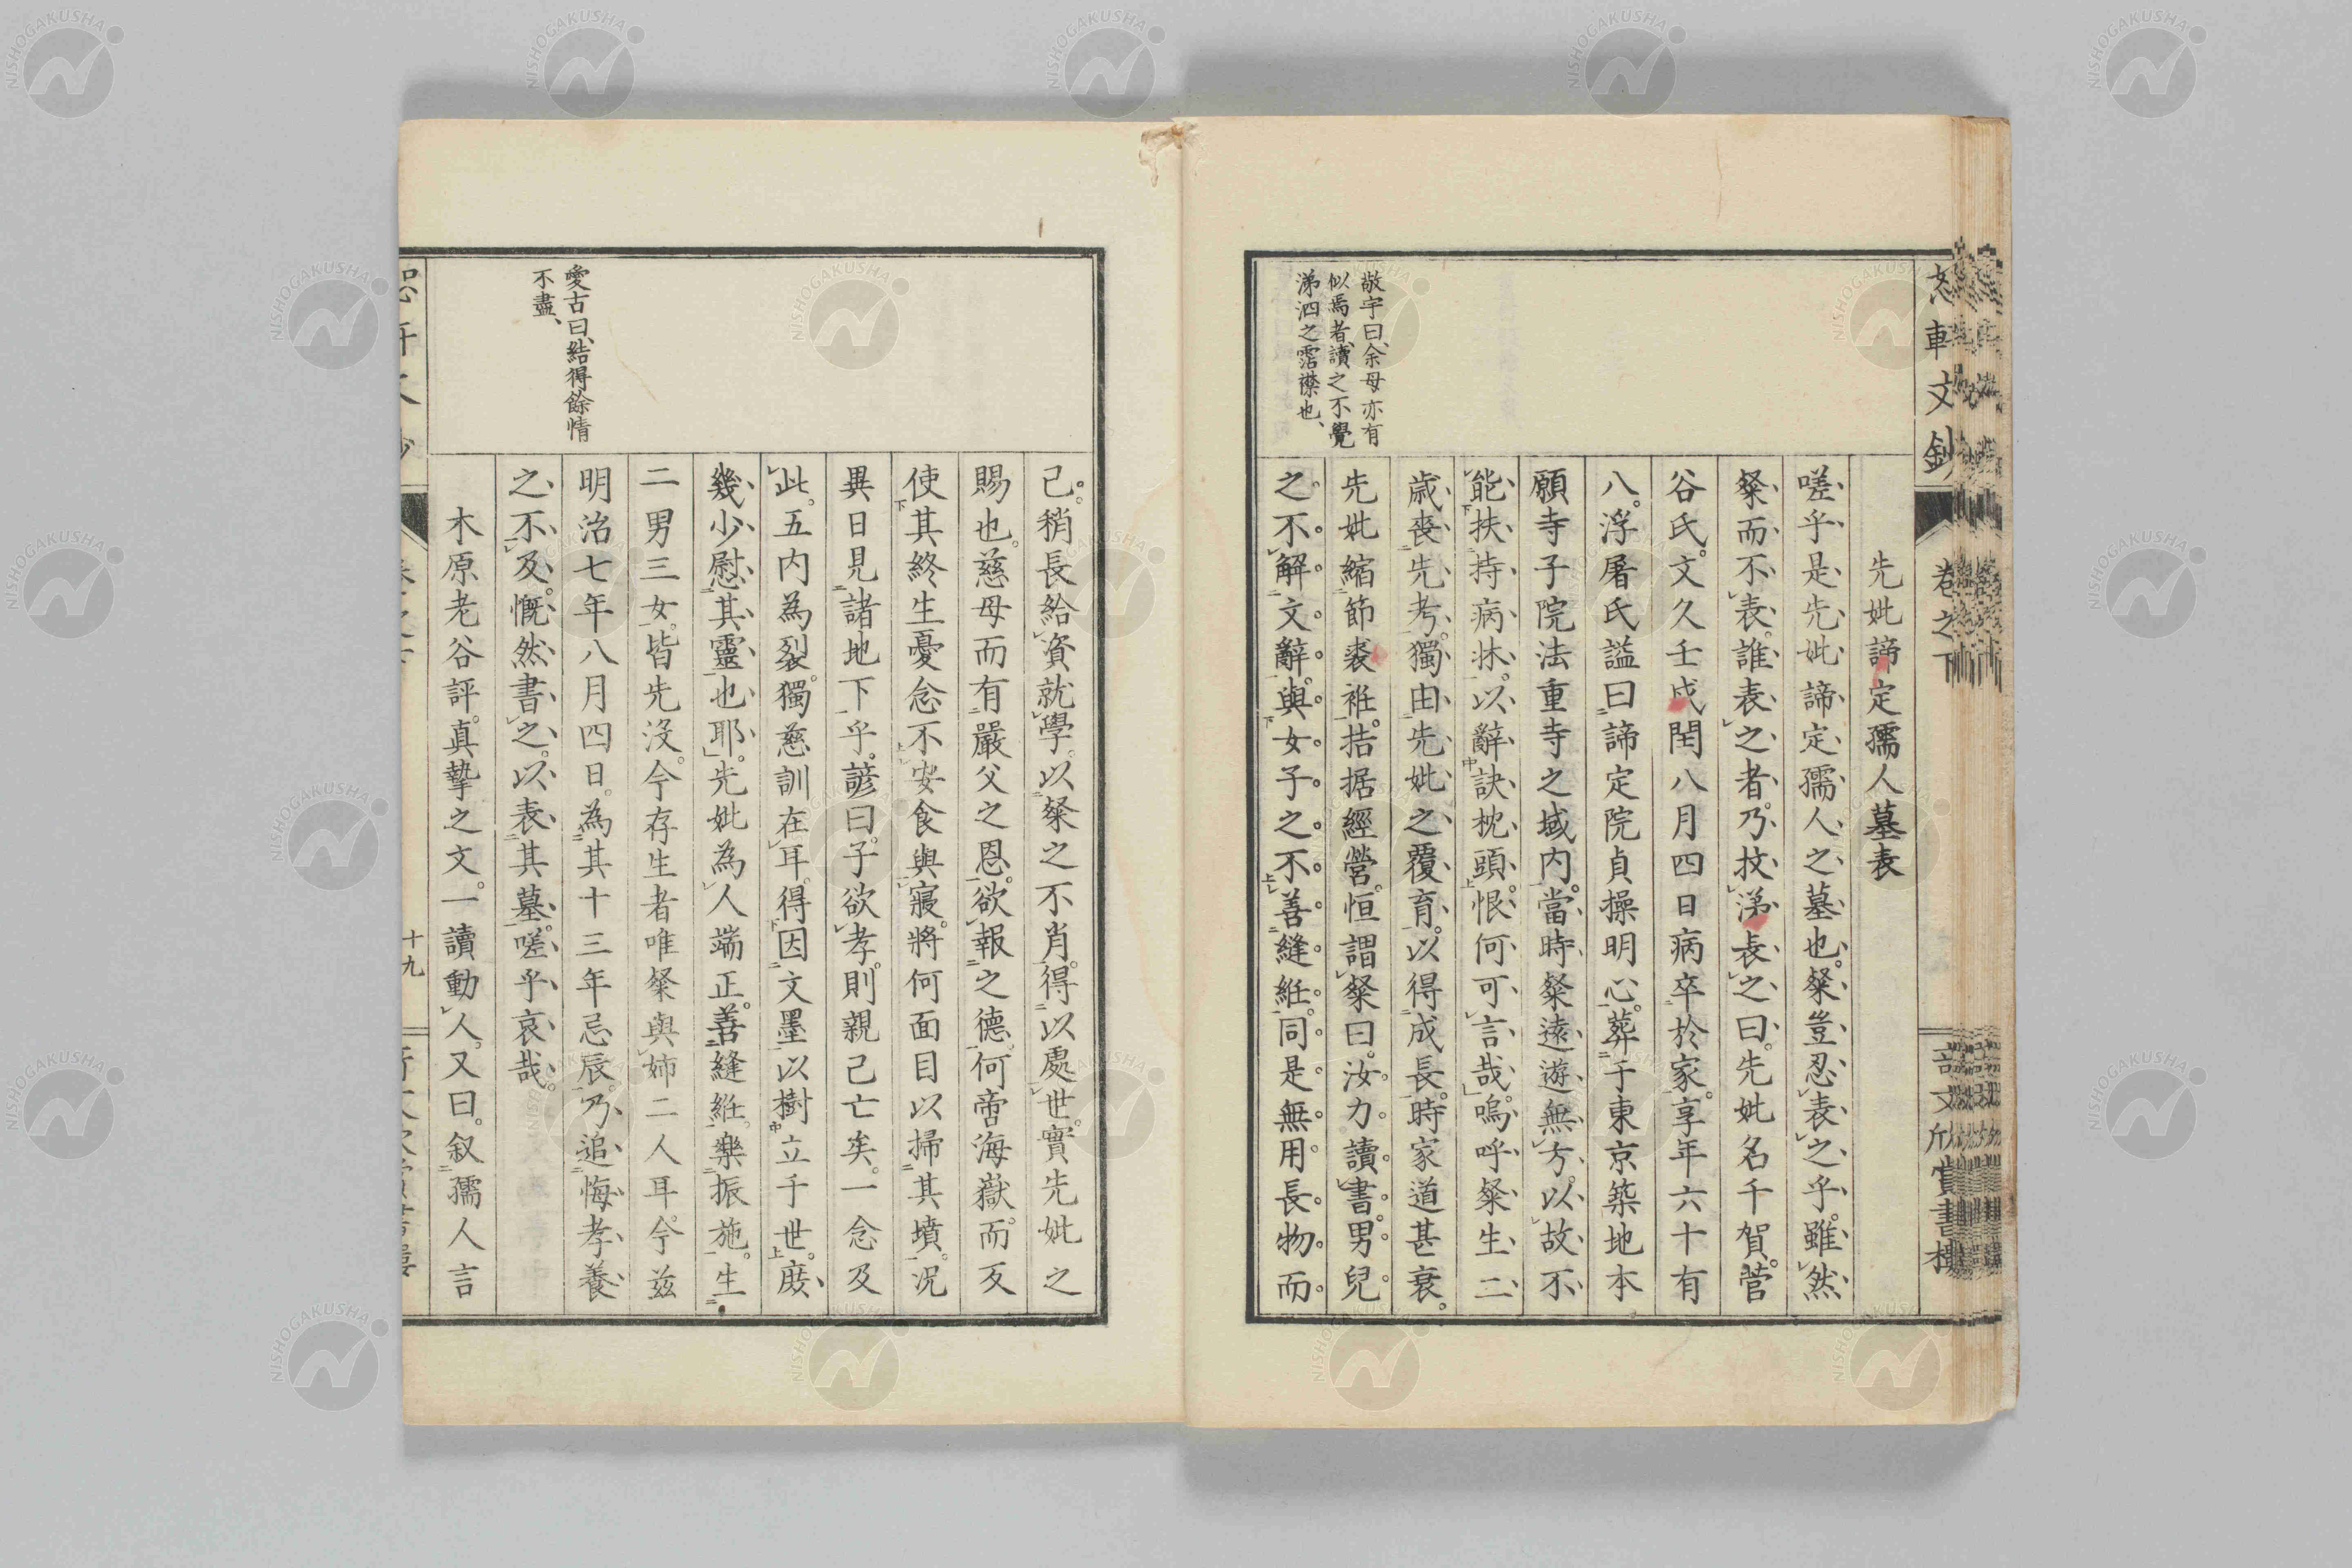 恕軒文鈔
卷之下
奇文欣賞書樓
先妣諦定孺人墓表
嗟乎是先妣諦定孺人之墓也。粲豈忍表之乎。雖然
粲而不表。誰表之者。乃抆涕表之曰。先妣名千賀。菅
谷氏。文久壬戌閏八月四日病卒於家。享年六十有
八。浮屠氏謚曰諦定院貞操明心。葬于東京築地本
願寺子院法重寺之域内。當時粲遠遊無方。以故不
能扶持病牀。以辭訣枕頭。恨何可言哉。嗚呼粲生二
歳喪先考。獨由先妣之覆育。以得成長。時家道甚衰。
先妣縮節裘袵。拮据經營。恒謂粲曰。汝力讀書。男兒
之不解文辭。與女子之不善縫紝。同是無用長物。而
敬宇曰、余母亦有
似焉者、讀之不覺
涕泗之霑襟也、
己。稍長給資就學。以粲之不肖。得以處世。實先妣之
賜也。慈母而有嚴父之恩。欲報之德。何啻海嶽。而反
使其終生憂念不安食與寢。將何面目以掃其墳。況
異日見諸地下乎。諺曰。子欲孝。則親已亡矣。一念及
此。五内為裂。獨慈訓在耳。得因文墨以樹立于世。庶
幾少慰其靈也耶。先妣為人端正。善縫紝。樂振施。生
二男三女。皆先沒。今存生者唯粲與姉二人耳。今茲
明治七年八月四日。為其十三年忌辰。乃追悔孝養
之不及。慨然書之。以表其墓。嗟乎哀哉。
木原老谷評。真摯之文。一讀動人。又曰。叙孺人言
愛古曰、結得餘情
不盡、
十九